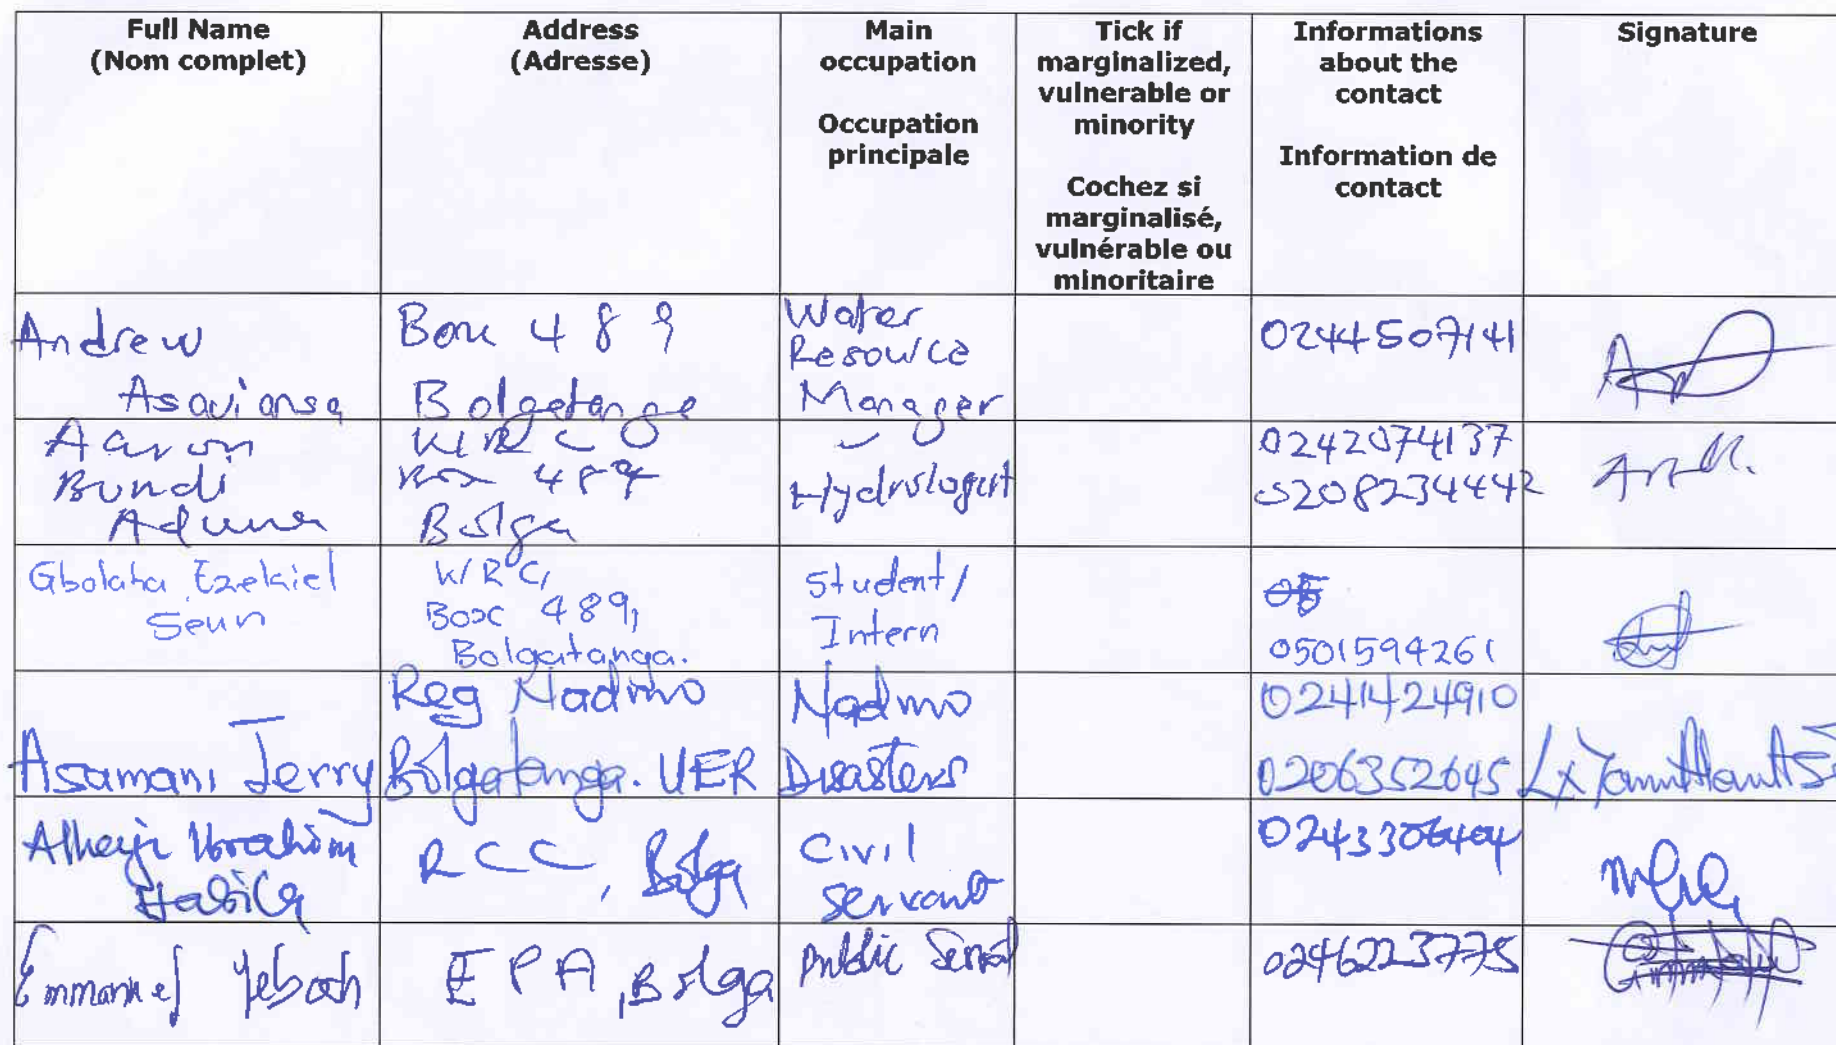 Full Name
(Nom complet)
Address
(Adresse)
Main
occupation
Occupation
principale
Tick if
marginalized,
vulnerable or
minority
Cochez si
marginalisé,
vulnérable ou
minoritaire
Informations
about the
contact
Information de
contact
Signature
Andrew
Asavi ansa
Box 489
Bolgatanga
Water
Resource
Manager
0244507141
Aaron
Bundi
Aduna
WRC
Box 489
Bolga
Hydrologist
0242074137
0208234442
Gbolaha Ezekiel
Seun
WRC,
Box 489,
Bolgatanga.
Student/
Intern
0501594261
Asamani Jerry
Reg Nadmo
Bolgatanga. UER
Nadmo
Disasters
0241424910
0206352645
Ibrahim
RCC, Bolga
Civil
Servant
Emmanuel Yeboah
EPA, Bolga
Public
0246223775